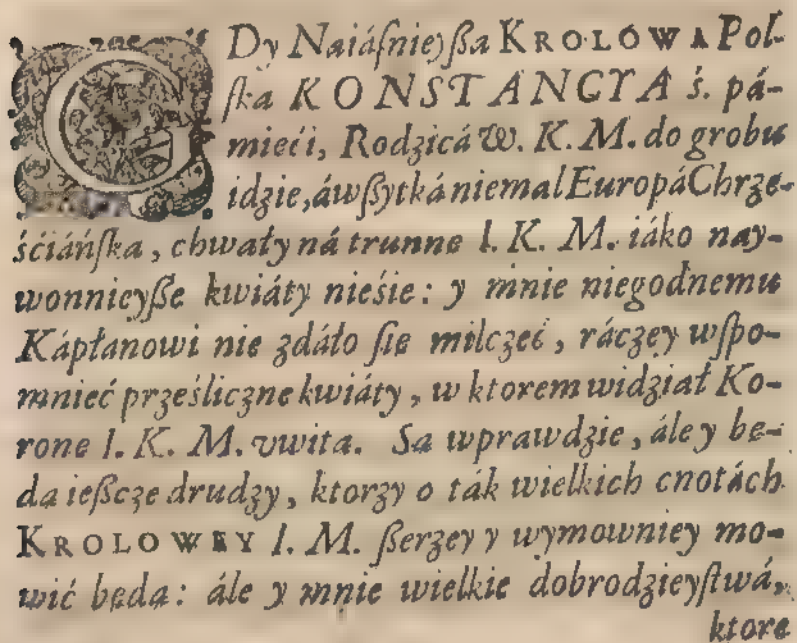 GDy Naiáſnieyſza KROLOWA Pol-
ſka KONSTANCYA ś. pá-
mieći, Rodzicá W. K. M. do grobu
idzie, á wſzytká niemal Europá Chrze-
śćiáńſka, chwały ná trunne I. K. M. iáko nay-
wonnieyſze kwiáty nieśie: y mnie niegodnemu
Kápłanowi nie zdáło ſie milczeć, ráczey wſpo-
mnieć prześliczne kwiáty, w ktorem widział Ko-
rone I. K. M. vwita. Sa wprawdzie, ále y be-
da ieſzcze drudzy, ktorzy o ták wielkich cnotách
KROLOWEY I. M. ſzerzey y wymowniey mo-
wić będa: ále y mnie wielkie dobrodzieyſtwá,
ktore